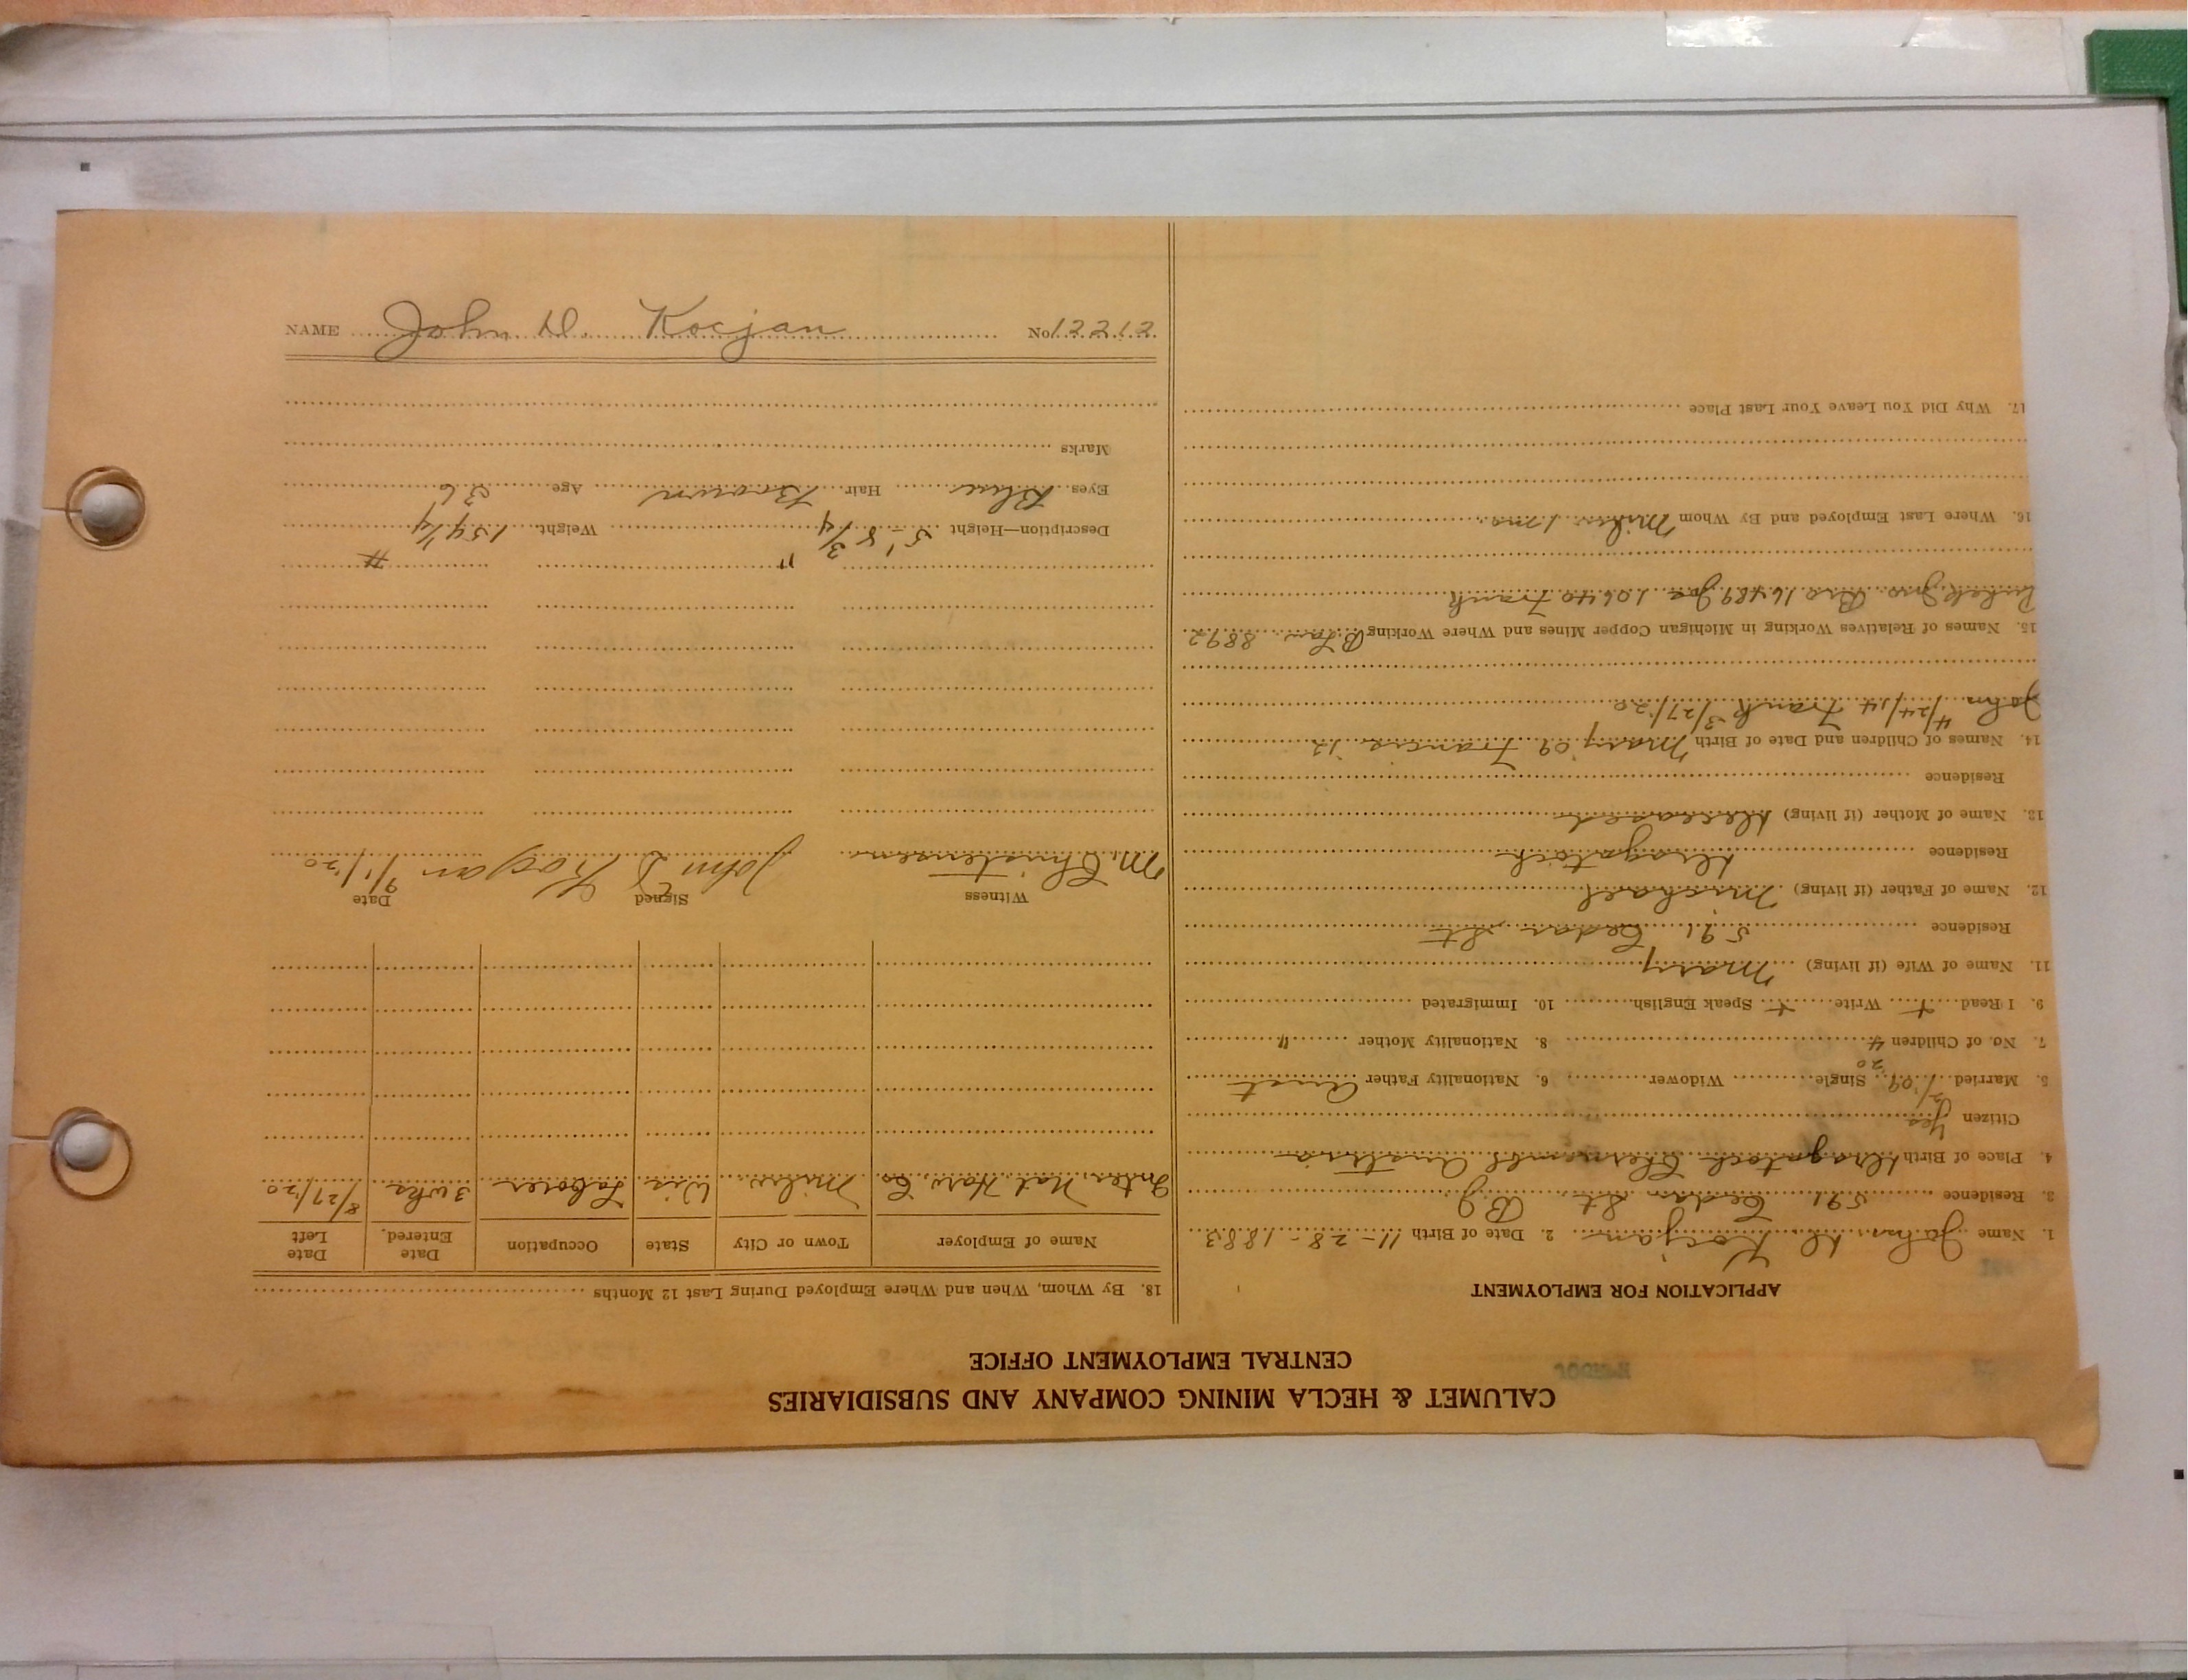 CALUMET & HECLA MINING COMPANY AND SUBSIDIARIES
CENTRAL EMPLOYMENT OFFICE
APPLICATION FOR EMPLOYMENT
1. Name John D. Kocjan 2. Date of Birth 11-28-1883
3. Residence 591 Cedar St
4. Place of Birth Austria
Citizen Yes
5. Married Single Widower 6. Nationality Father Aust
7. No. of Children 4 8. Nationality Mother "
9. I Read + Write + Speak English 10. Immigrated
11. Name of Wife (if living) Mary
Residence 591 Cedar St
12. Name of Father (if living) Michael
Residence
13. Name of Mother (if living) Deceased
Residence
14. Names of Children and Date of Birth Mary '09 Francis '12
John 4/24/14 Frank 3/27/20
15. Names of Relatives Working in Michigan Copper Mines and Where Working 8892
Bro 16489 Joe 10640 Frank
16. Where Last Employed and By Whom Milw. 1 mo.
17. Why Did You Leave Your Last Place
18. By Whom, When and Where Employed During Last 12 Months
Name of Employer Town or City State Occupation Date Entered Date Left
Inter. Nat. Harv. Co Milw. Wis Laborer 3 wks 8/27/20
Witness Signed Date
M. Christensen John D Kocjan 9/1/20
Description—Height 5' 8 3/4" Weight 154 1/4 #
Eyes Blue Hair Brown Age 36
Marks
NAME John D. Kocjan No. 12212